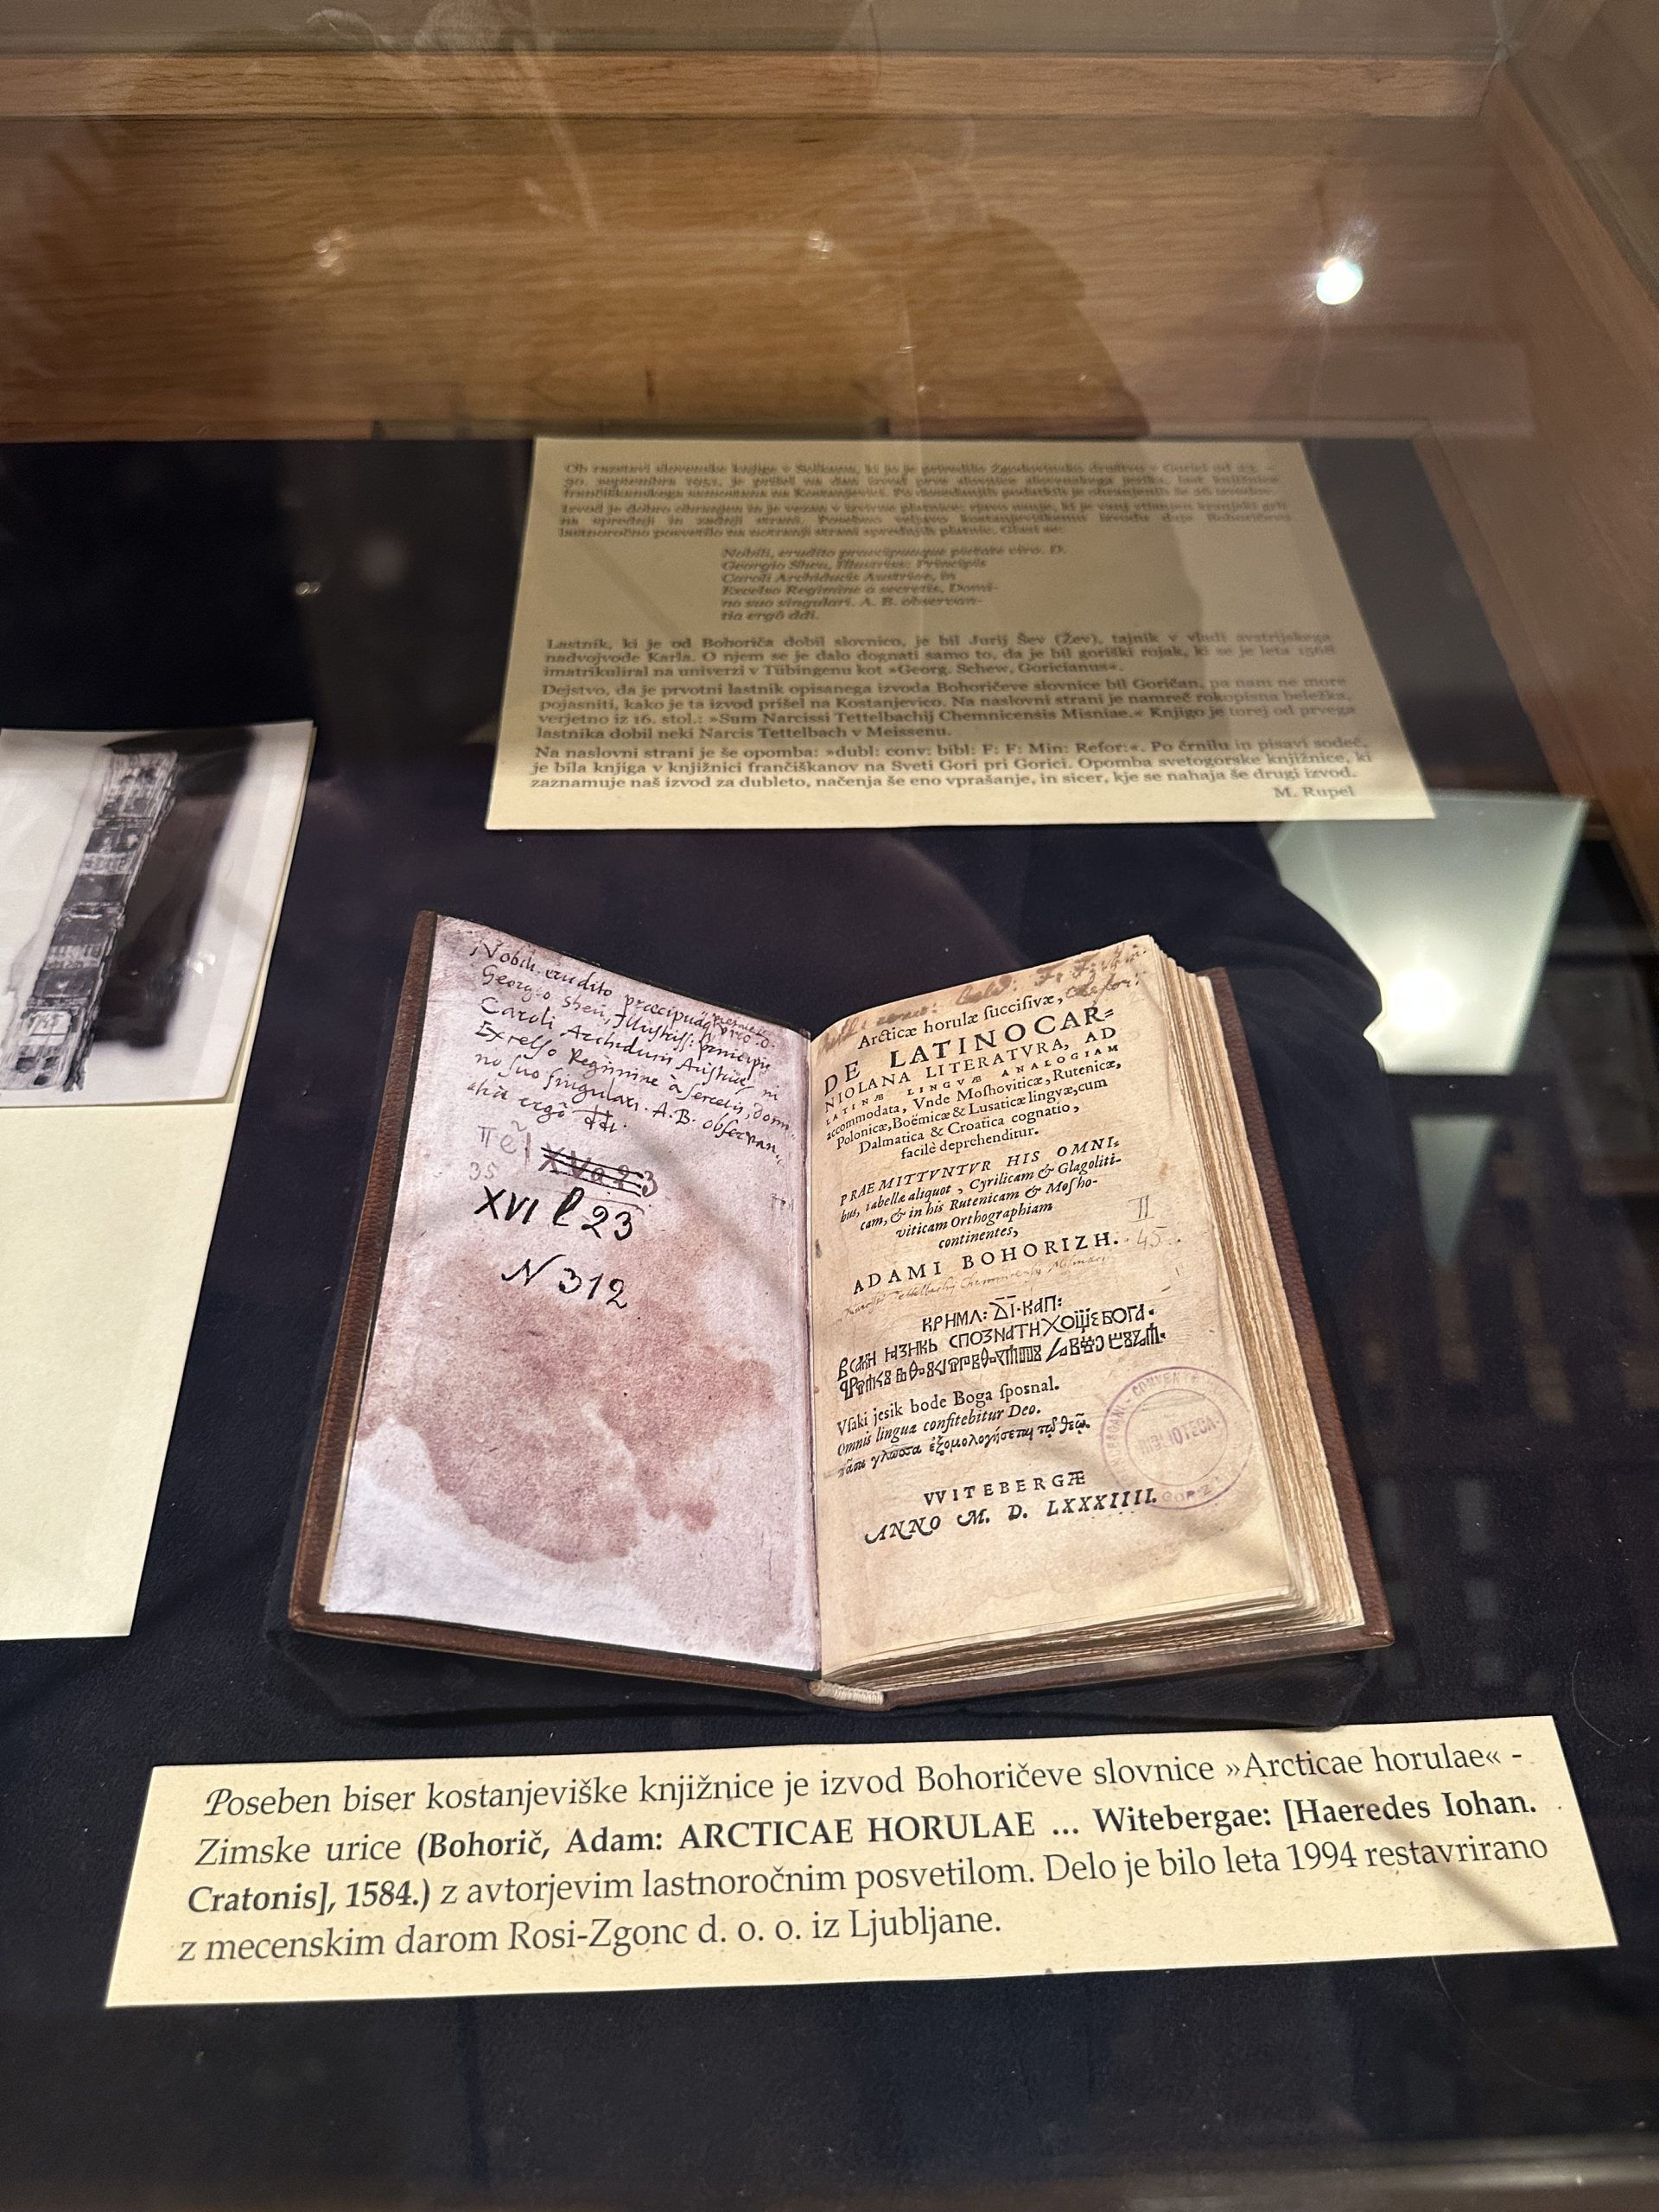 Ob razstavi slovenske knjige v Solkanu, ki jo je priredilo Zgodovinsko društvo v Gorici od 23. –
30. septembra 1951, je prišel na dan izvod prve slovnice slovenskega jezika, last knjižnice
frančiškanskega samostana na Kostanjevici. Po dosedanjih podatkih je ohranjenih še 26 izvodov.
Izvod je dobro ohranjen in je vezan v izvirne platnice: rjavo usnje, ki je vanj vtisnjen kranjski grb
na sprednji in zadnji strani. Posebno veljavo kostanjeviškemu izvodu daje Bohoričevo
lastnoročno posvetilo na notranji strani sprednjih platnic. Glasi se:
Nobili, erudito praecipuaque pietate viro. D.
Georgio Sheu, Illustriss: Principis
Caroli Archiducis Austriae, in
Excelso Regimine a secretis, Domi-
no suo singulari. A. B. observan-
tia ergò ddi.
Lastnik, ki je od Bohoriča dobil slovnico, je bil Jurij Šev (Žev), tajnik v vladi avstrijskega
nadvojvode Karla. O njem se je dalo dognati samo to, da je bil goriški rojak, ki se je leta 1568
imatrikuliral na univerzi v Tübingenu kot »Georg. Schew, Goricianus«.
Dejstvo, da je prvotni lastnik opisanega izvoda Bohoričeve slovnice bil Goričan, pa nam ne more
pojasniti, kako je ta izvod prišel na Kostanjevico. Na naslovni strani je namreč rokopisna beležka,
verjetno iz 16. stol.: »Sum Narcissi Tettelbachij Chemnicensis Misniae.« Knjigo je torej od prvega
lastnika dobil neki Narcis Tettelbach v Meissenu.
Na naslovni strani je še opomba: »dubl: conv: bibl: F: F: Min: Refor:«. Po črnilu in pisavi sodeč,
je bila knjiga v knjižnici frančiškanov na Sveti Gori pri Gorici. Opomba svetogorske knjižnice, ki
zaznamuje naš izvod za dubleto, načenja še eno vprašanje, in sicer, kje se nahaja še drugi izvod.
M. Rupel
Nobili erudito præcipuaq pietate viro. D.
Georgio Sheu, Illustriss: Principis
Caroli Archiducis Austriæ, in
Excelso Regimine à secretis, Domi-
no suo singulari. A. B. observan-
tia ergò ddi.
35
XVI l 23
N 312
F: F: Min:
Refor:
Arcticæ horulæ ſucciſivæ,
DE LATINOCAR=
NIOLANA LITERATVRA, AD
LATINÆ LINGVÆ ANALOGIAM
accommodata, Vnde Moſhoviticæ, Rutenicæ,
Polonicæ, Boëmicæ & Lusaticæ lingvæ, cum
Dalmatica & Croatica cognatio,
facilè deprehenditur.
PRAEMITTVNTVR HIS OMNI=
bus, tabellæ aliquot, Cyrilicam & Glagoliti-
cam, & in his Rutenicam & Moſho-
viticam Orthographiam
continentes,
ADAMI BOHORIZH.
II
45
КРИМЛ: ДІ·КАП:
ВСАКИ ꙖЗИКЬ СПОЗНАТИ ХОЩЕ БОГА.
Vſaki jesik bode Boga ſposnal.
Omnis lingua confitebitur Deo.
πᾶσα γλῶσσα ἐξομολογήσεται τῷ θεῷ.
VVITEBERGÆ
ANNO M. D. LXXXIIII.
CONVENTE
BIBLIOTECA
Poseben biser kostanjeviške knjižnice je izvod Bohoričeve slovnice »Arcticae horulae« -
Zimske urice (Bohorič, Adam: ARCTICAE HORULAE ... Witebergae: [Haeredes Iohan.
Cratonis], 1584.) z avtorjevim lastnoročnim posvetilom. Delo je bilo leta 1994 restavrirano
z mecenskim darom Rosi-Zgonc d. o. o. iz Ljubljane.